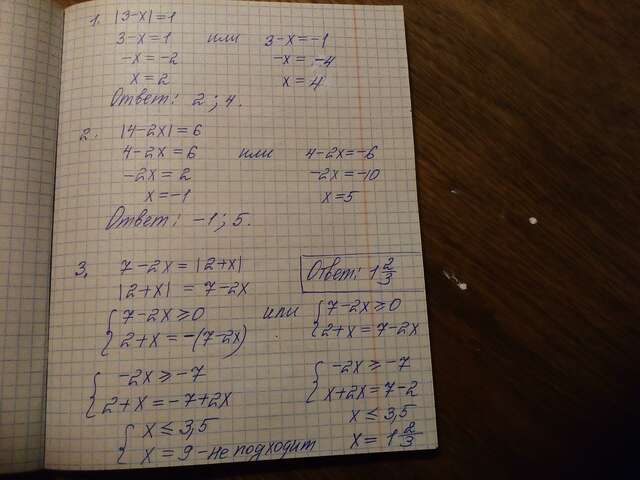 1. |3-x|=1
3-x=1 или 3-x=-1
-x=-2 -x=-4
x=2 x=4
Ответ: 2; 4.
2. |4-2x|=6
4-2x=6 или 4-2x=-6
-2x=2 -2x=-10
x=-1 x=5
Ответ: -1; 5.
3. 7-2x=|2+x|
Ответ: 1 2/3
|2+x|=7-2x
{7-2x≥0 или {7-2x≥0
2+x=-(7-2x) 2+x=7-2x
{-2x≥-7 {-2x≥-7
2+x=-7+2x x+2x=7-2
{x≤3,5 x≤3,5
x=9-не подходит x=1 2/3